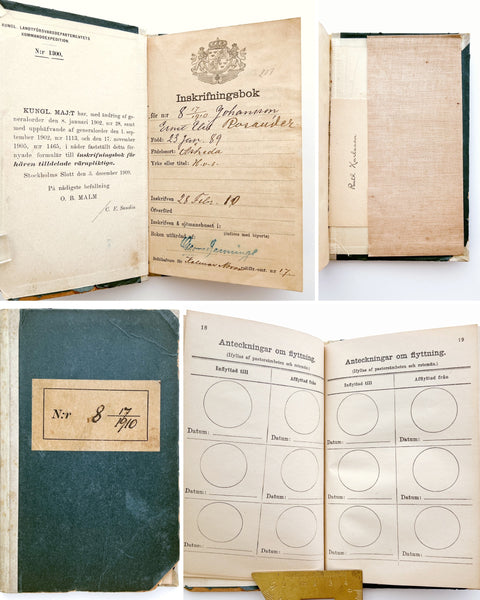 KUNGL. LANDTFÖRSVARSDEPARTEMENTETS
KOMMANDOEXPEDITION.
N:r 1300.
KUNGL. MAJ:T har, med ändring af ge-
neralorder den 8. januari 1902, nr 28, samt
med upphäfvande af generalorder den 1. sep-
tember 1902, nr 1113, och den 17. november
1905, nr 1465, i nåder fastställt detta för-
nyade formulär till inskrifningsbok för
hären tilldelade värnpliktige.
Stockholms Slott den 3. december 1909.
På nådigste befallning
O. B. MALM
C. F. Sandin
Inskrifningsbok
för nr 8 17/1910 Johansson
Ernst Elis Rosander
Född: 23 Jan. 89
Födelseort: Astreda
Yrke eller titel: H.v.s.
Inskrifven 28 Febr. 10
Öfverförd
Inskrifven å sjömanshuset i:
Boken utfärdad af:
Rullföringsomr. Kalmar Norra nr 17
N:r 8 17/1910
18
Anteckningar om flyttning.
(Ifylles af pastorsämbeten och rotemän.)
Inflyttad till
Afflyttad från
Datum:
Datum:
Datum:
Datum:
Datum:
Datum:
19
Anteckningar om flyttning.
(Ifylles af pastorsämbeten och rotemän.)
Inflyttad till
Afflyttad från
Datum:
Datum:
Datum:
Datum:
Datum:
Datum: